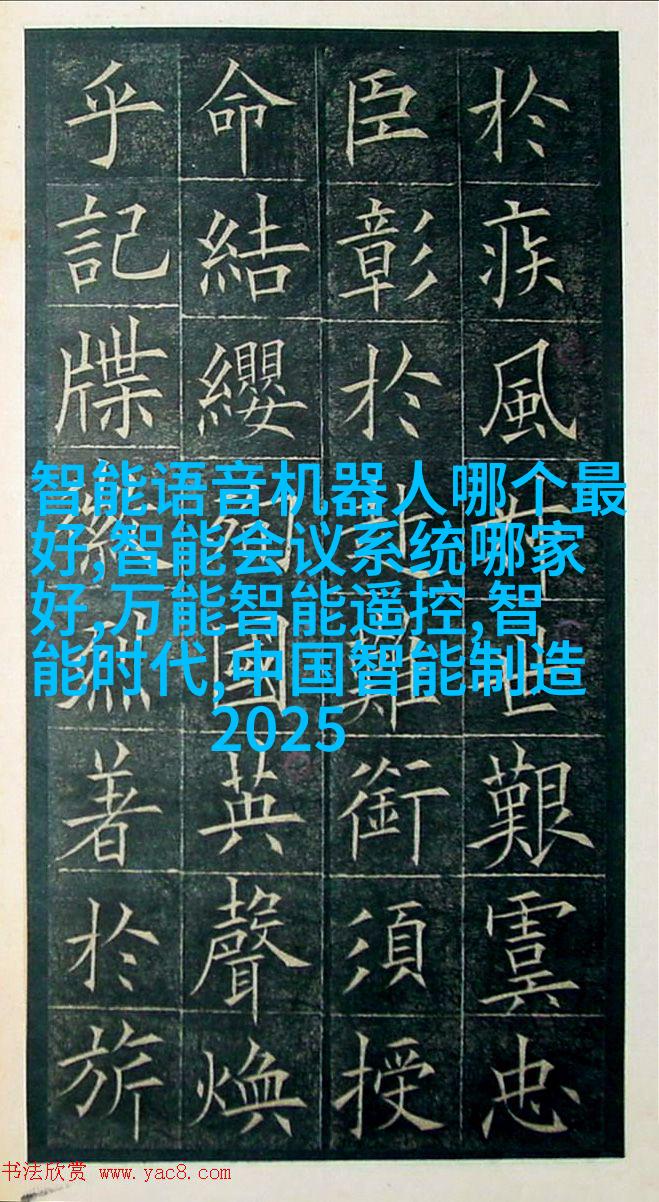 於疾風世艱虞忠
臣彰於赴難銜須授
命結纓國英聲煥
乎記牒著於旂
智能语音机器人哪个最
好,智能会议系统哪家
好,万能智能遥控,智
能时代,中国智能制造
2025
书法欣赏 www.yac8.com